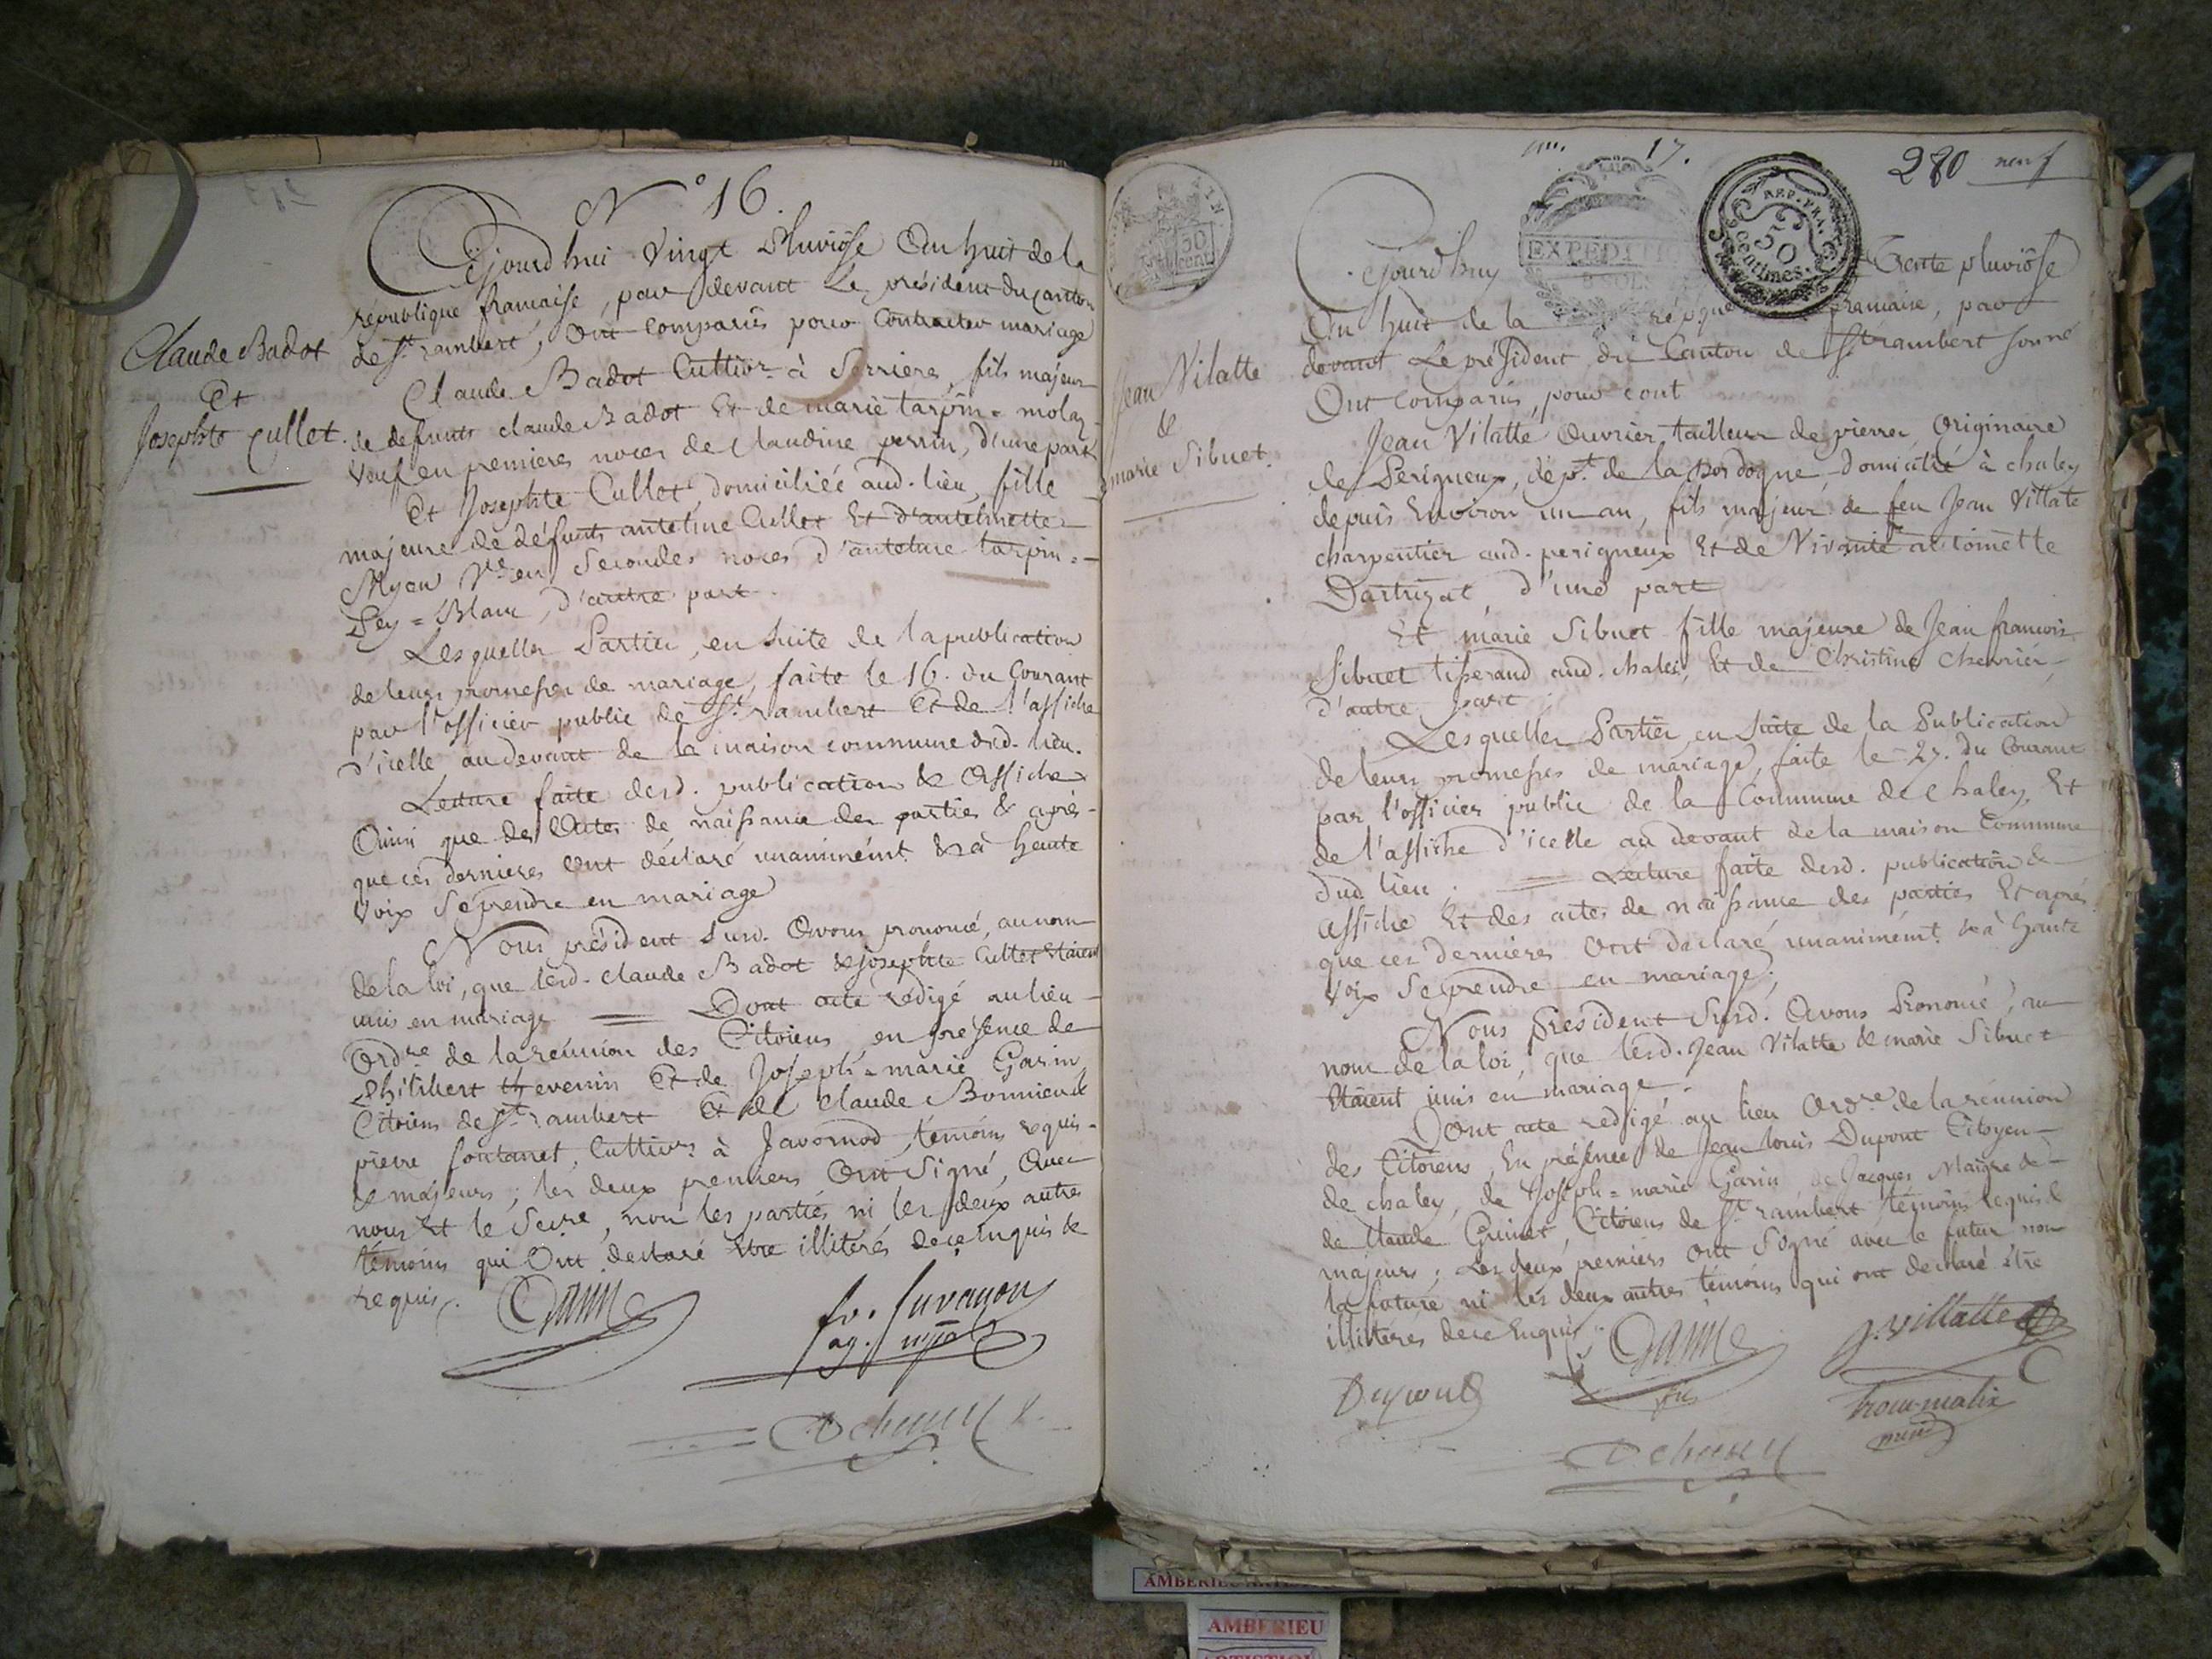 N° 16.
Cejourd'hui vingt Pluviôse an huit de la
république francaise, par devant le président du canton
de St. rambert, ont comparus pour contracter mariage
Claude Badot
et
Josephte Cullet.
Claude Badot Cultivr. à Serrieres, fils majeur
de defunts claude Badot et de marie tarpin = molaz
veuf en premieres noces de claudine perrin, d'une part
Et Josephte Cullet domiciliée aud. lieu, fille
majeure de défunts antelme Cullet et d'antelmette
Myen Ve. en secondes noces d'antelme tarpin =
Pey = Blanc, d'autre part.
Lesquelles Parties, en suite de la publication
de leurs promesses de mariage, faite le 16. du Courant
par l'officier public de St. rambert et de l'affiche
d'icelle au devant de la maison commune dud. lieu.
Lecture faite desd. publication & affiche
Ainsi que des Actes de naissance des parties & après
que ces dernieres ont déclaré unanimémt. & à haute
voix se prendre en mariage
Nous président susd. avons prononcé, au nom
de la loi, que lesd. claude Badot & josephte Cullet étaient
unis en mariage = Dont acte rédigé au lieu
ordre de la réunion des Citoiens en présence de
Philibert thevenin et de Joseph = marie Garin
Citoiens de St. rambert et de claude Bonnieu &
pierre fontanet, Cultivrs. à Javornod, témoins requis
& majeurs; les deux premiers ont signé, avec
nous et le Secre, non les parties ni les deux autres
témoins qui ont declaré être illitérés de ce enquis &
requis.
Garin
fr. Juvanon
ag. mpal
17.
280 neuf
REP. FRA.
50
centimes.
50
cent
EXPEDITI
8 SOLS
Cejourd'huy Trente pluviôse
an huit de la répque francaise, par
devant Le président du Canton de St. rambert sonné
Ont comparus, pour cont
Jean Vilatte
&
marie Sibuet.
Jean Vilatte ouvrier tailleur de pierres, originaire
de Perigueux, dépt. de la Dordogne, domicilié à chaley
depuis environ un an, fils majeur de feu Jean Villate
charpentier aud. perigueux et de Vivante antoinette
Dartuzat, d'une part
Et marie Sibuet fille majeure de Jean francois
Sibuet tisserand aud. chaley, et de Christine chevrier
d'autre part
Lesquelles Parties en suite de la Publication
de leurs promesses de mariage, faite le 27. du Courant
par l'officier public de la Commune de Chaley, et
de l'affiche d'icelle au devant de la maison Commune
dud. lieu; = Lecture faite desd. publication &
affiche et des actes de naissance des parties et après
que ces dernieres ont déclaré unanimémt. & à haute
voix se prendre en mariage;
Nous président susd. avons Prononcé, au
nom de la loi, que lesd. Jean Vilatte & marie Sibuet
étaient unis en mariage.
Dont acte redigé au lieu ordre de la réunion
des Citoiens, en présence de Jean louis Dupont Citoyen
de chaley, de Joseph = marie Garin, de Jacques Maigre &
de claude Grinet, Citoiens de St. rambert témoins requis &
majeurs; Les deux premiers ont signé avec le futur non
la future ni les deux autres témoins qui ont declaré être
illittérés de ce enquis;
Garin
fils
J. Villatte
Dupont
AMBERIEU
AMBERIEU